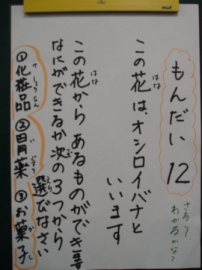 もんだい 12
さあ?
わかるかな?
はな
この花は、オシロイバナと
いいます
はな
この花から あるものができます
なにができるか次の3つから
選びなさい
けしょうひん
①化粧品 ②目薬 ③お菓子